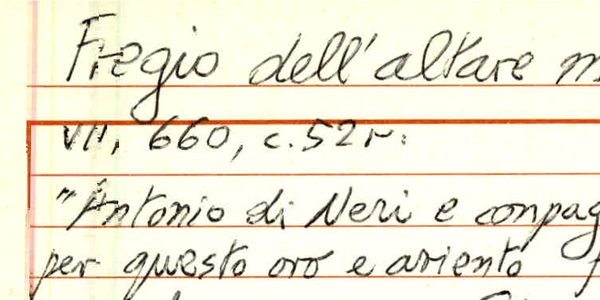 Fregio dell'altare m
VII, 660, c.52r:
"Antonio di Neri e compag
per questo oro e ariento